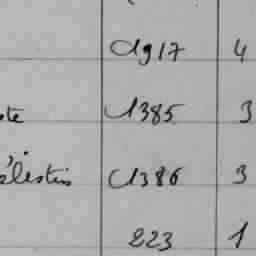 1917 4
ste 1385 3
élestin 1386 3
223 1